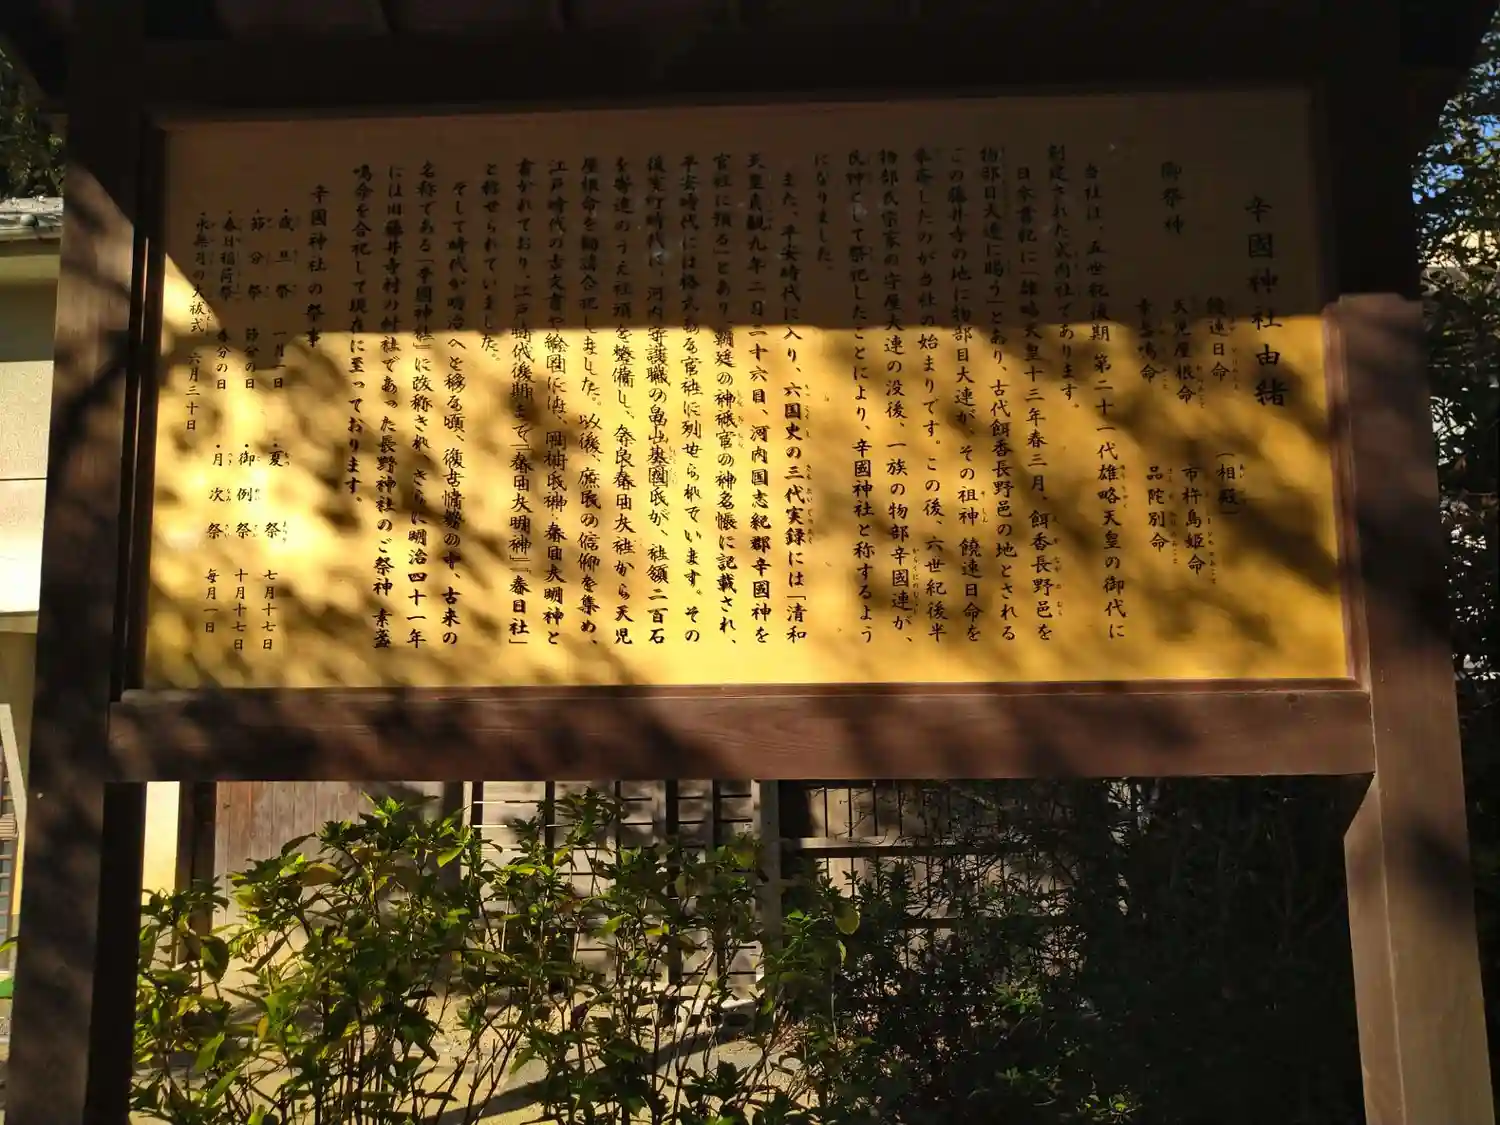 辛國神社由緒
御祭神
饒速日命
天児屋根命
素盞嗚命
(相殿)
市杵島姫命
品陀別命
当社は、五世紀後期 第二十一代雄略天皇の御代に
創建された式内社であります。
日本書紀に「雄略天皇十三年春三月、餌香長野邑を
物部目大連に賜う」とあり、古代餌香長野邑の地とされる
この藤井寺の地に物部目大連が、その祖神 饒速日命を
奉斎したのが当社の始まりです。この後、六世紀後半
物部氏宗家の守屋大連の没後、一族の物部辛國連が、
氏神として祭祀したことにより、辛國神社と称するよう
になりました。
また、平安時代に入り、六国史の三代実録には「清和
天皇貞観九年二月二十六日、河内国志紀郡辛國神を
官社に預る」とあり、朝廷の神祇官の神名帳に記載され、
平安時代には格式ある官社に列せられています。その
後室町時代に、河内守護職の畠山基國氏が、社領二百石
を寄進のうえ社頭を整備し、奈良春日大社から天児
屋根命を勧請合祀しました。以後、庶民の信仰を集め、
江戸時代の古文書や絵図には、岡神氏神・春日大明神と
書かれており、江戸時代後期まで「春日大明神」「春日社」
と称せられていました。
そして時代が明治へと移る頃、復古情勢の中、古来の
名称である「辛國神社」に改称され、さらに明治四十一年
には旧藤井寺村の村社であった長野神社のご祭神 素盞
嗚命を合祀して現在に至っております。
辛國神社の祭事
・歳旦祭 一月一日
・節分祭 節分の日
・春日稲荷祭 春分の日
・水無月の大祓式 六月三十日
・夏祭 七月十七日
・御例祭 十月十七日
・月次祭 毎月一日